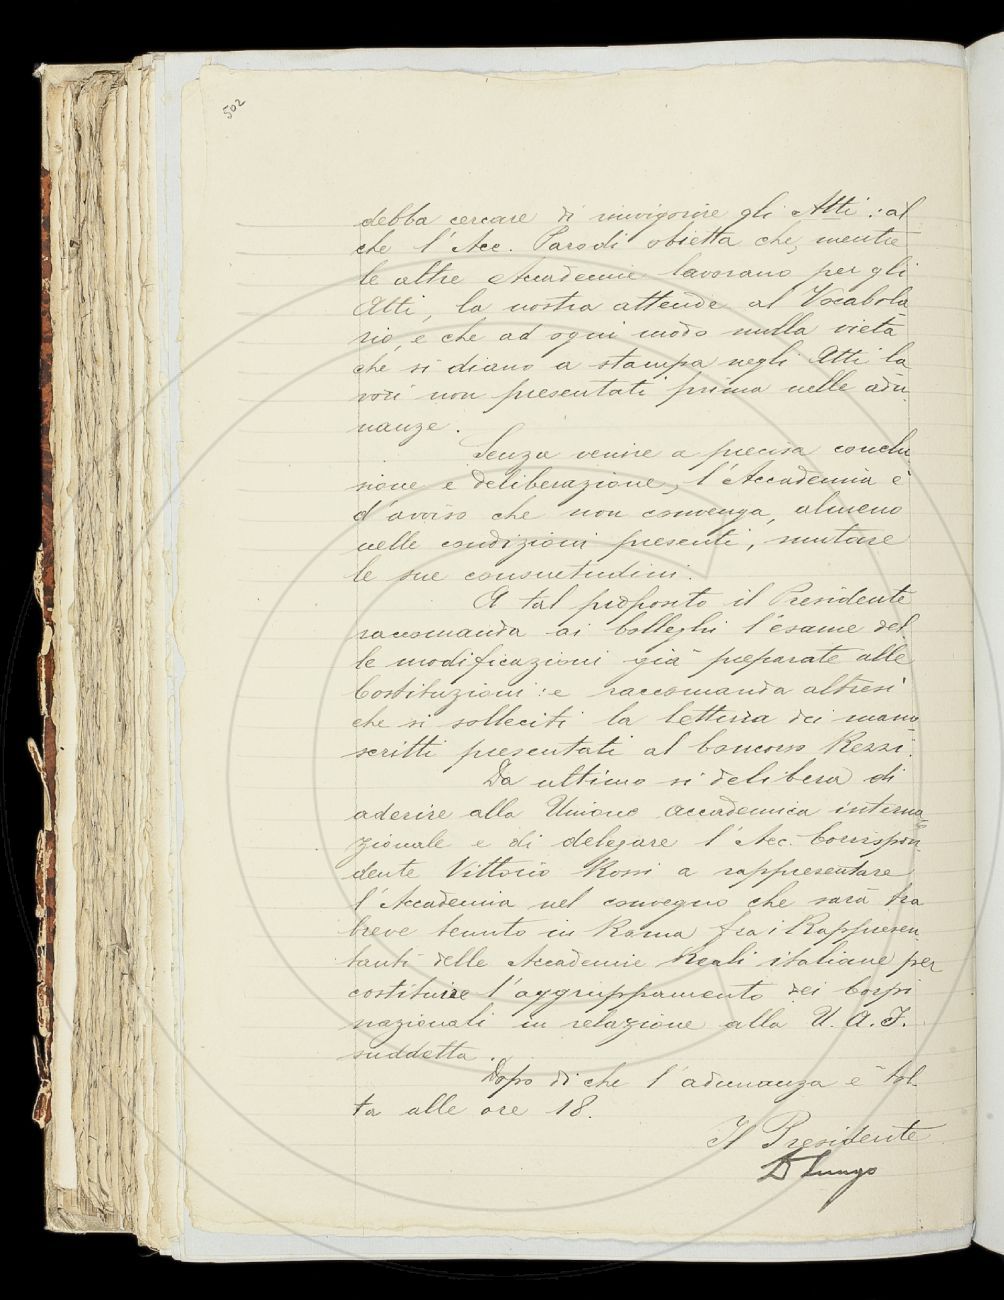 502
debba cercare di rinvigorire gli Atti: al
che l'Acc. Parodi obietta che, mentre
le altre Accademie lavorano per gli
Atti, la nostra attende al Vocabola
rio, e che ad ogni modo nulla vieta
che si diano a stampa negli Atti la
vori non presentati prima nelle adu
nanze.
Senza venire a precisa conclu
sione e deliberazione, l'Accademia è
d'avviso che non convenga, almeno
nelle condizioni presenti, mutare
le sue consuetudini.
A tal proposito il Presidente
raccomanda ai Colleghi l'esame del
le modificazioni già preparate alle
Costituzioni: e raccomanda altresì
che si solleciti la lettura dei mano
scritti presentati al Concorso Rezzi.
Da ultimo si delibera di
aderire alla Unione accademica interna
zionale e di delegare l'Acc. Corrispon
dente Vittorio Rossi a rappresentare
l'Accademia nel convegno che sarà tra
breve tenuto in Roma fra i Rappresen
tanti delle Accademie Reali italiane per
costituire l'aggruppamento dei Corpi
nazionali in relazione alla U. A. I.
suddetta.
Dopo di che l'adunanza è tol
ta alle ore 18.
Il Presidente
D Lungo